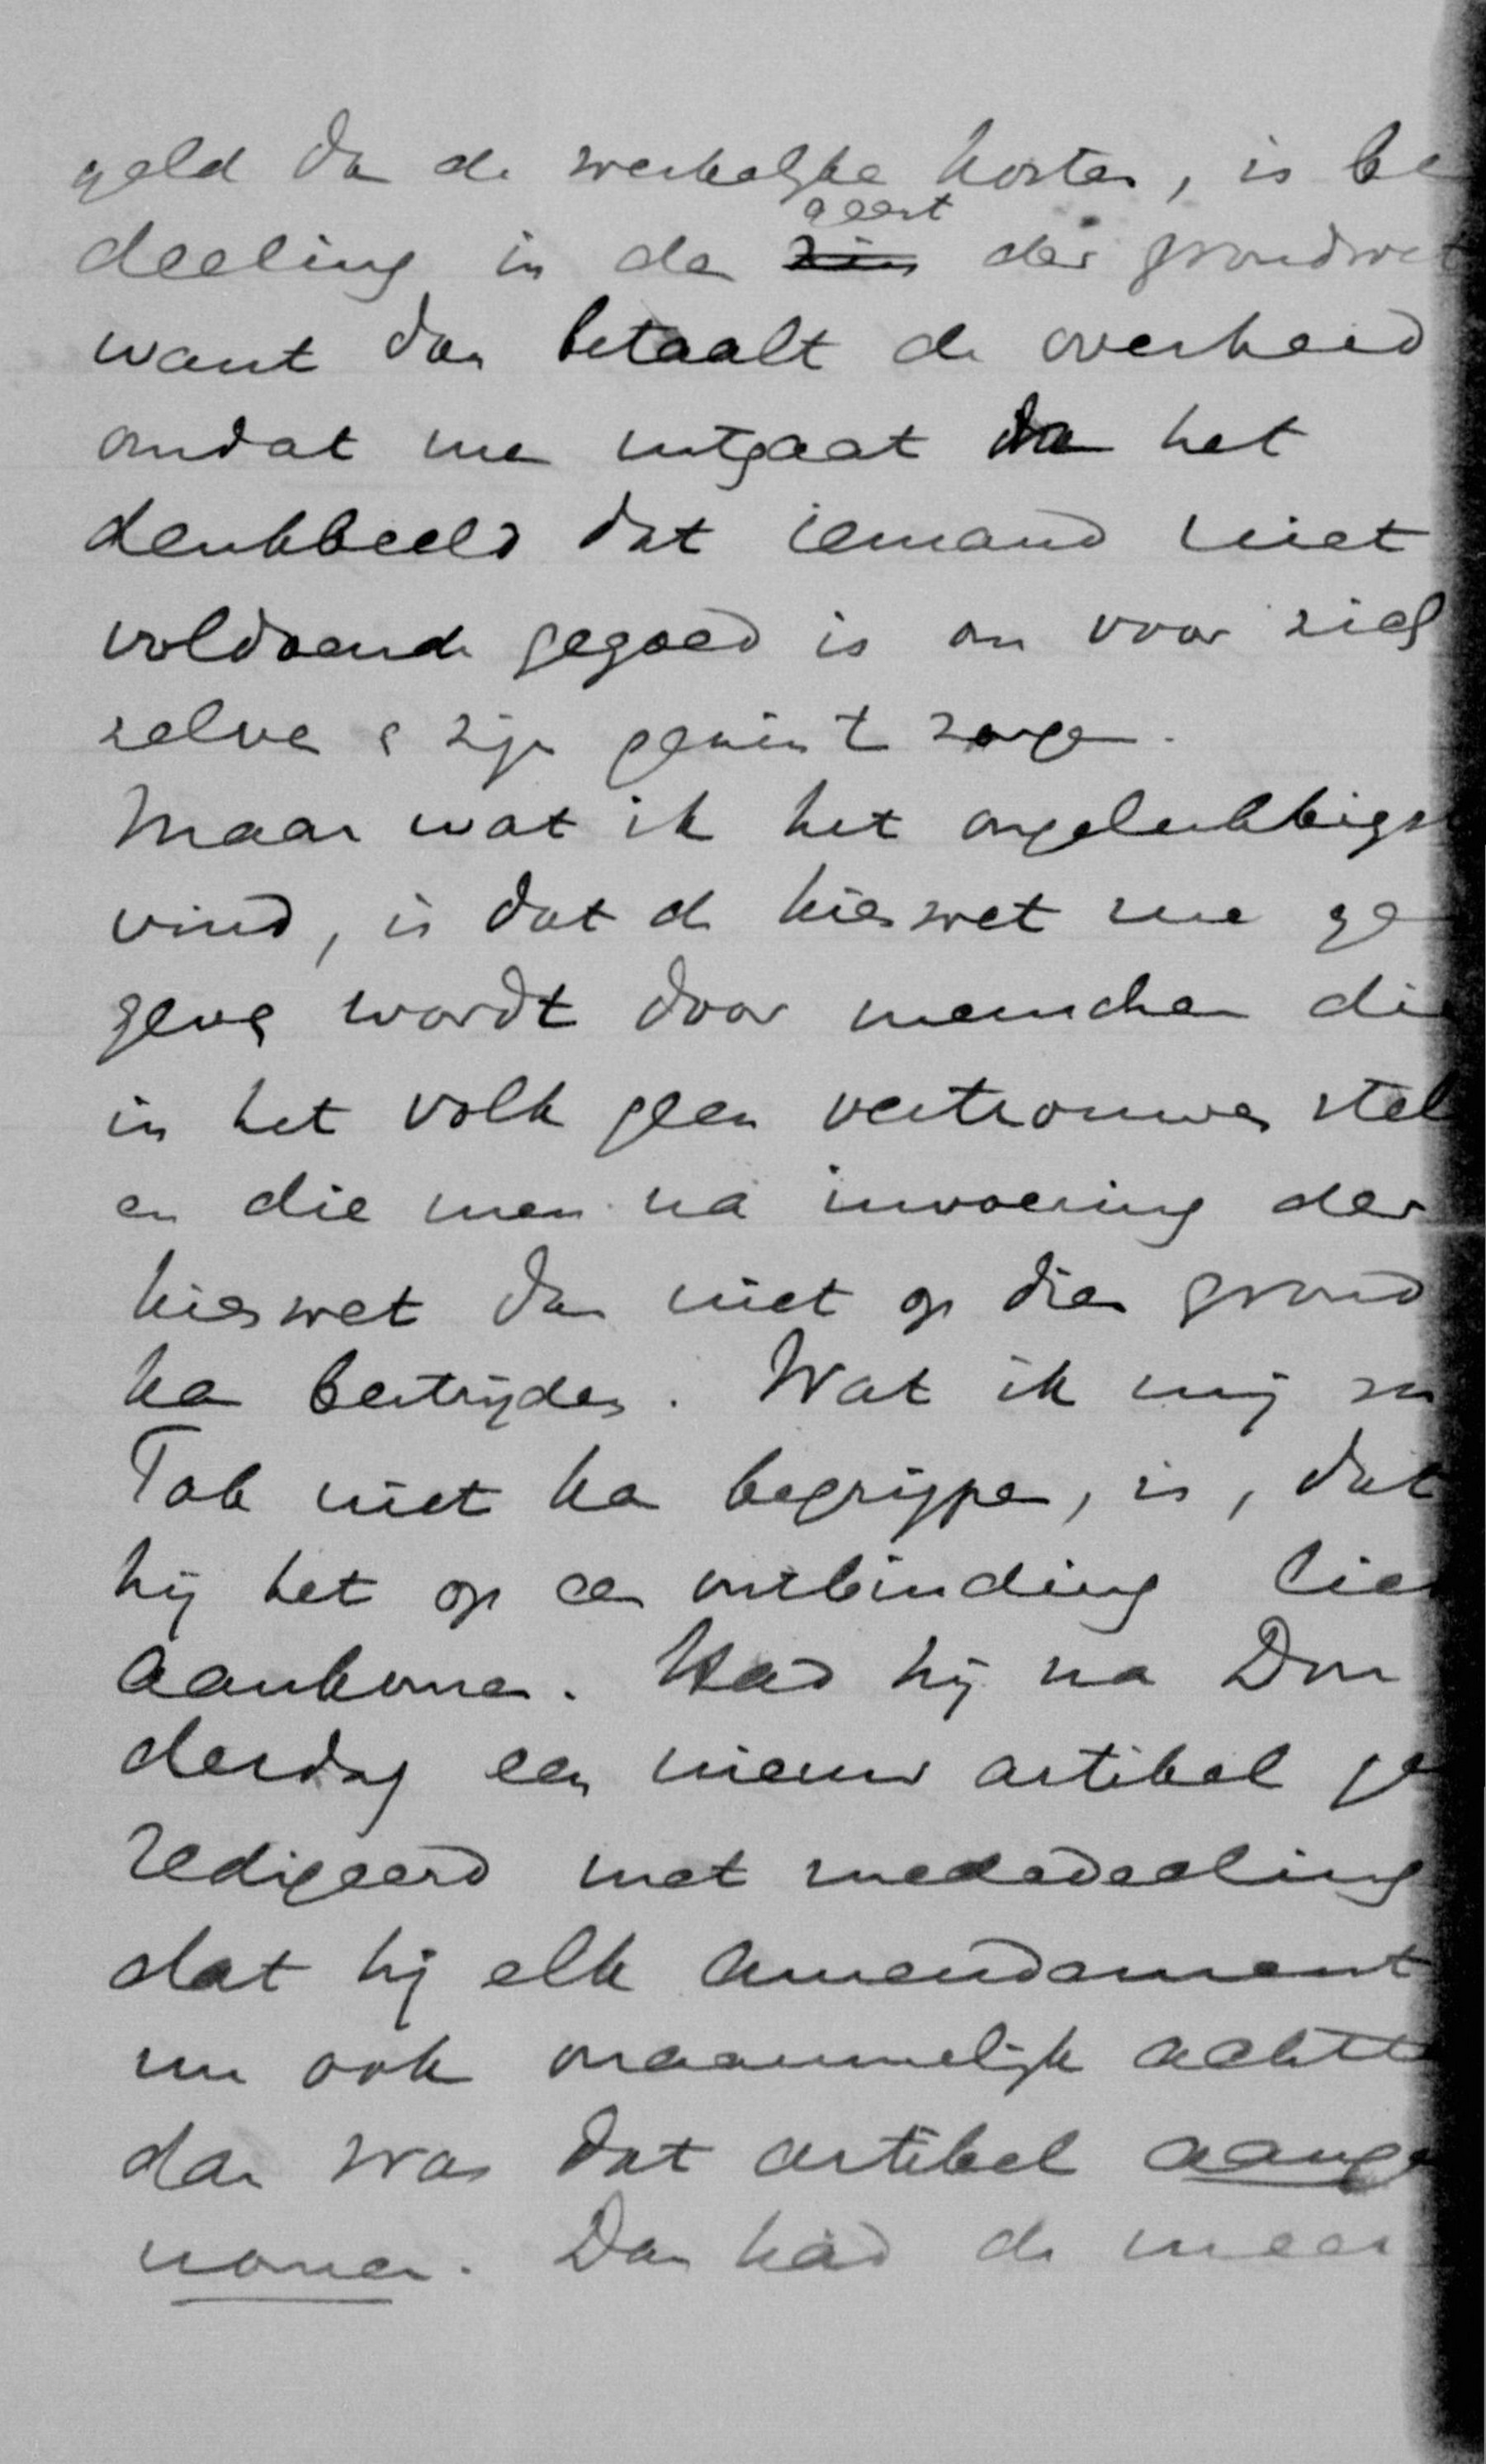 geld dan de werkelijke kosten, is be
deeling in de ~~zin~~ geest der grondwet
want dan betaalt de overheid
omdat men uitgaat van het
denkbeeld dat iemand niet
voldoende gegoed is om voor zich
zelve & zijn gezin te zorgen.
Maar wat ik het ongelukkigst
vind, is dat de kieswet nu ge
geven wordt door menschen die
in het volk geen vertrouwen stel
en die men na invoering der
kieswet dan niet op dien grond
kan bestrijden. Wat ik mij van
Tak niet kan begrijpen, is, dat
hij het op een ontbinding liet
aankomen. Had hij na Don
derdag een nieuw artikel ge
redigeerd met mededeeling
dat hij elk amendement
nu ook onaannemelijk achtte
dan was dat artikel aange
nomen. Dan had de meer